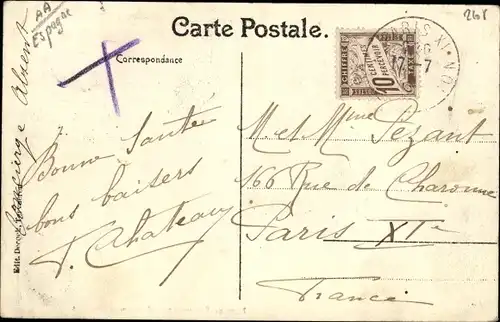 AA
Espagne
268
Carte Postale.
Correspondance
CHIFFRE TAXE
10
CENTIMES
À PERCEVOIR
PARIS XI
17 7
Bonne Santé
bons baisers
P. Chateau
M. et Mme Pezant
166 Rue de Charonne
Paris XIe
France